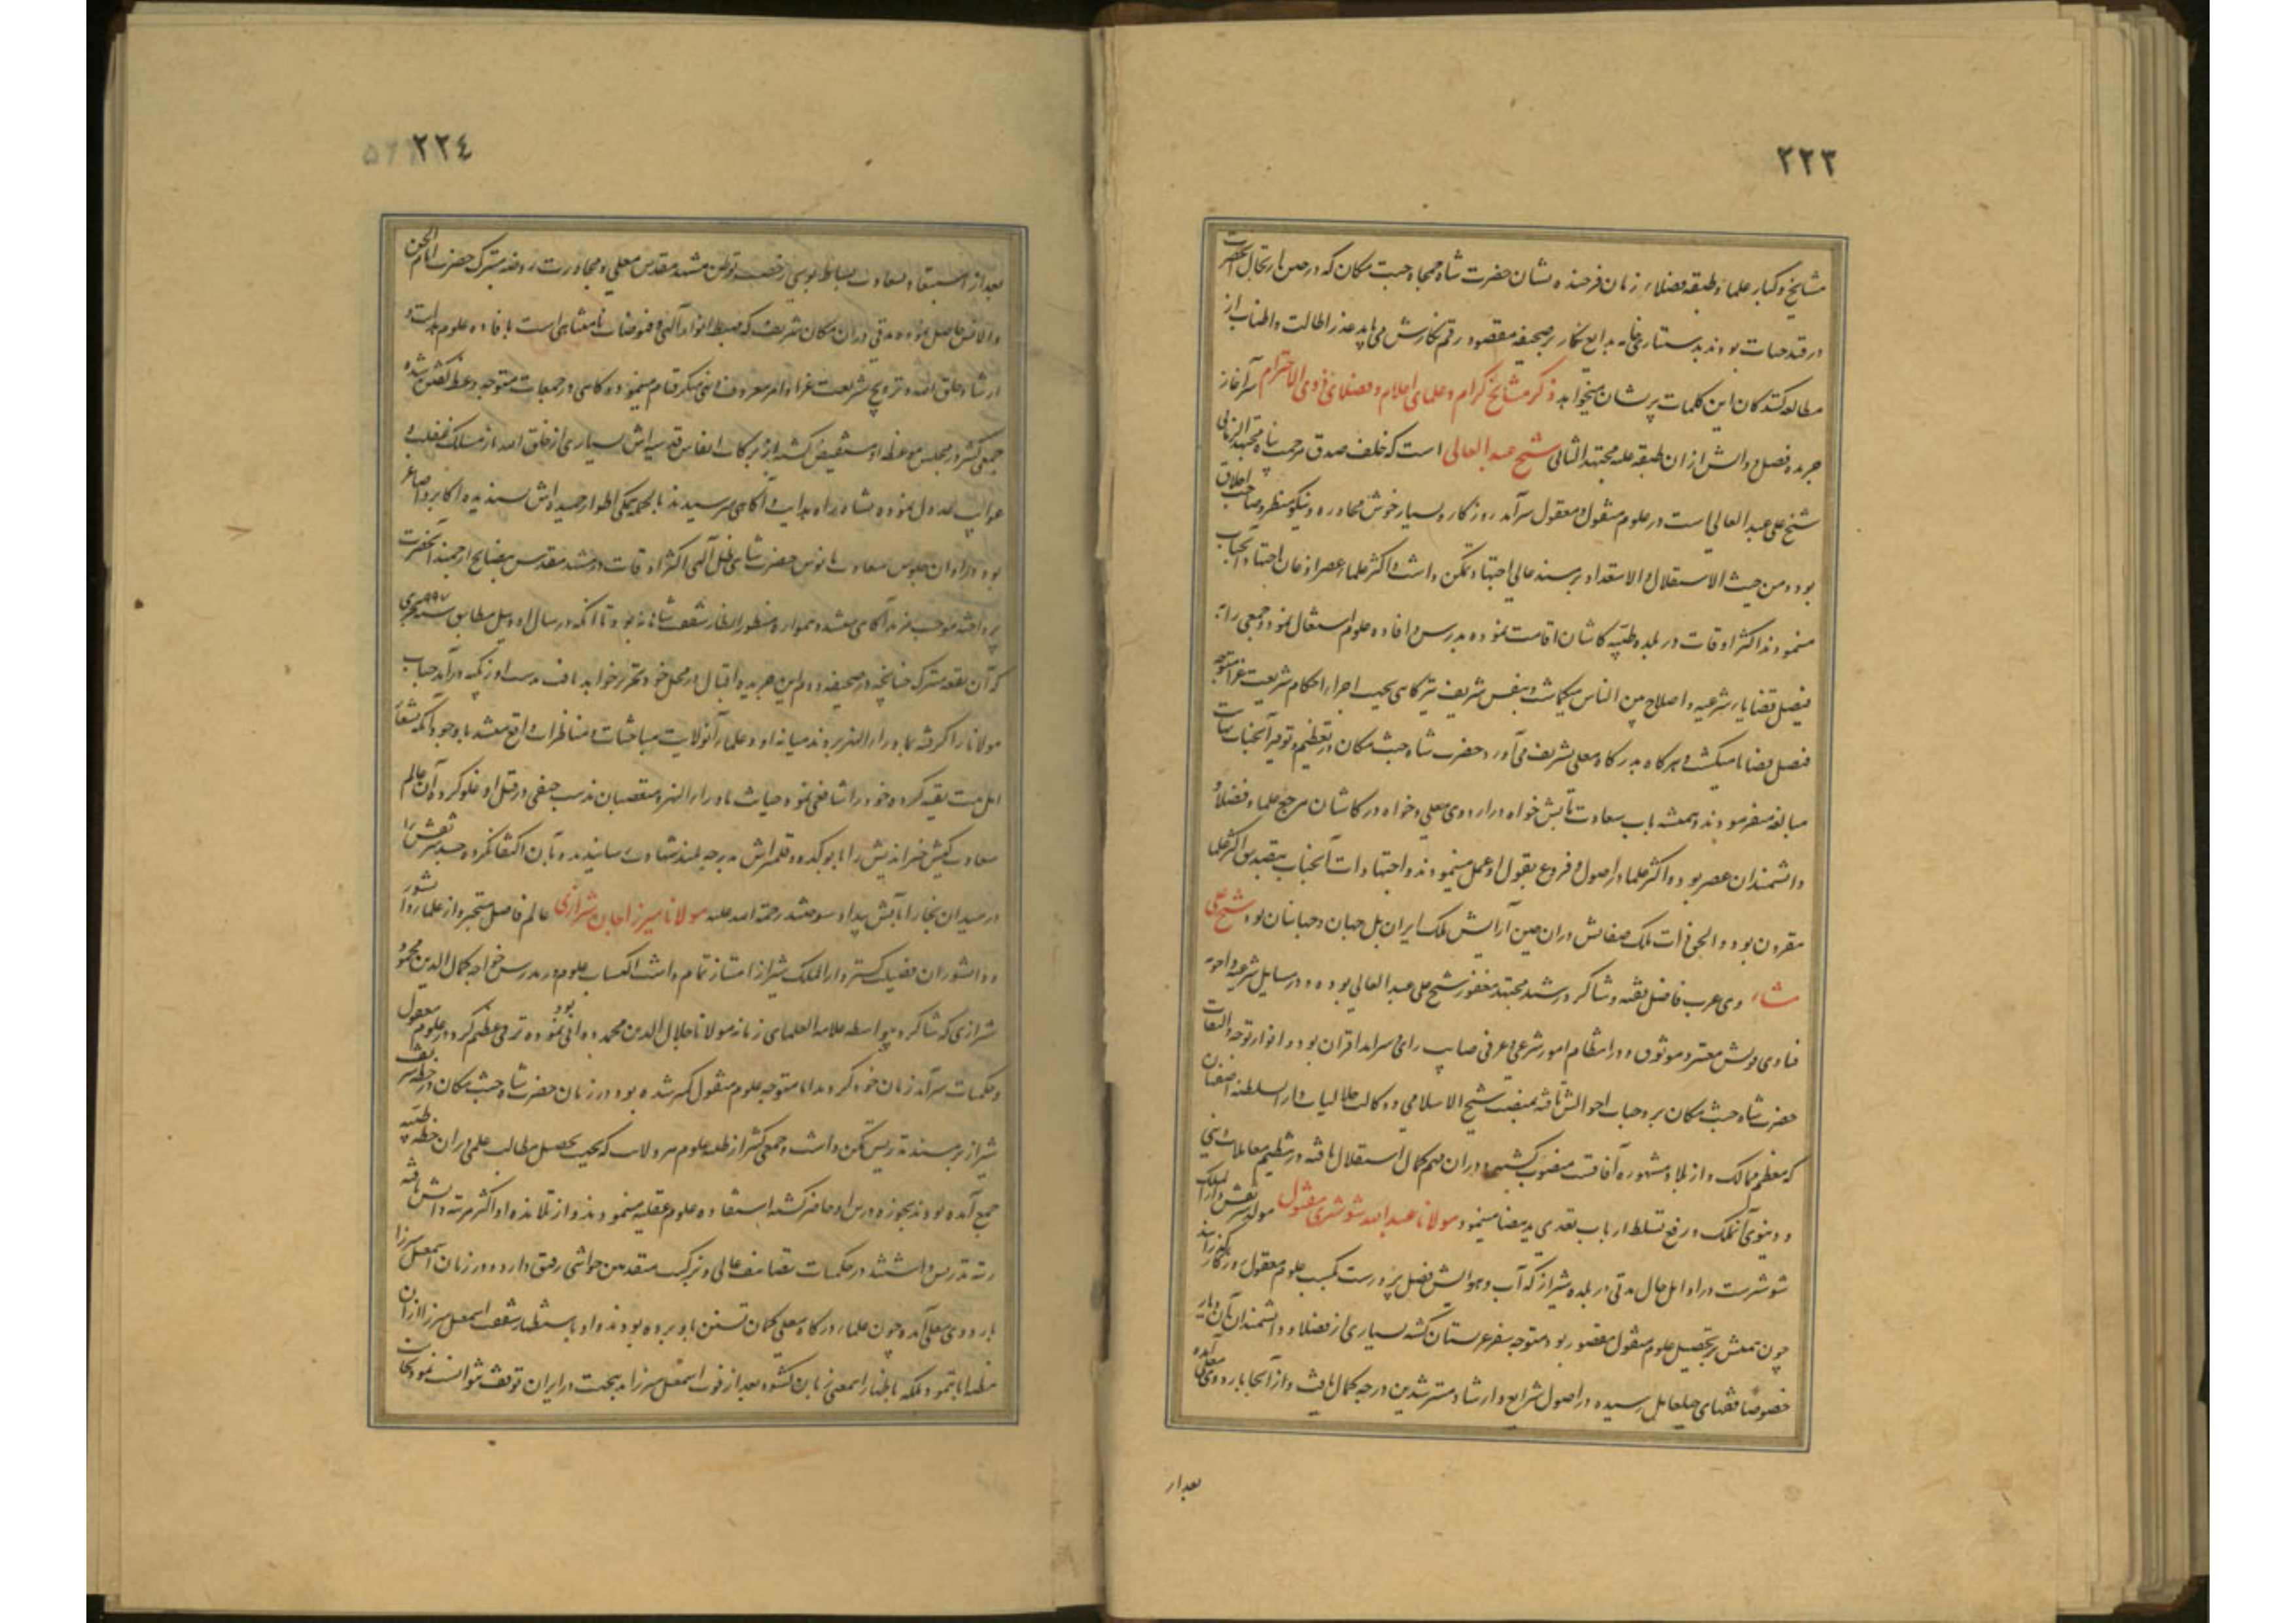 ۲۲۳
مشایخ و کبار علما و طبقه فضلاء زمان فرخنده نشان حضرت شاه جمجاه جنت مکان که در حین ارتحال آنحضرت
در قید حیات بودند بدستیاری خامه بدایع نگار بر صحیفه مقصود رقم نگارش می یابد عذر اطالت و اطناب از
مطالعه کنندگان این کلمات پریشان میخواهد ذکر مشایخ کرام و علمای اعلام و فضلای ذوی الاحترام سرآغاز
جریده فضل و دانش ازان طبقه علیه مجتهد الثانی شیخ عبد العالی است که خلف صدق مرحمت پناه مجتهد الزمانی
شیخ علی عبد العالی است در علوم منقول و معقول سرآمد روزگار و بسیار خوش محاوره و نیکو منظر و صاحب اخلاق
بود و من حیث الاستقلال و الاستعداد بر مسند عالی اجتهاد تمکن داشت و اکثر علماء عصر اذعان اجتهاد آنجناب
مینمودند اکثر اوقات در بلده طیبه کاشان اقامت نموده بدرس و افاده علوم اشتغال نمود و جمعی را به
فیصل قضایاء شرعیه و اصلاح بین الناس میگماشت و بنفس شریف نیز گاهی بجهت اجراء احکام شریعت غرا متوجه
فیصل قضایا میگشت و هرگاه بدرگاه معلی تشریف می آورد حضرت شاه جنت مکان در تعظیم و توقیر آنجناب غایت
مبالغه میفرمودند و همیشه باب سعادت مآبش خواه در اردوی معلی و خواه در کاشان مرجع علماء و فضلا و
دانشمندان عصر بود و اکثر علما در اصول و فروع بقول او عمل مینمودند و اجتهادات آنجناب بتصدیق اکثر علما
مقرون بود و الحق ذات ملک صفاتش دران حین آرایش ملک ایران بل جهان و جهانیان بود شیخ علی
منشار وی عرب فاضل فقیه و شاگرد رشید مجتهد مغفور شیخ علی عبد العالی بوده و در مسایل شرعیه و اجوبه
فتاوی قولش معتبر و موثوق و در انتظام امور شرعی و عرفی صایب رای و سرآمد اقران بود و انوار توجه و التفات
حضرت شاه جنت مکان بر وجنات احوالش تافته بمنصب شیخ الاسلامی و وکالت حلالیات دار السلطنه اصفهان
که معظم ممالک و از بلاد مشهوره آفاقست منصوب گشته و دران مهم کمال استقلال یافته در تنظیم معاملات دینی
و دنیوی آنملک و رفع تسلط ارباب تعدی ید بیضا مینمود مولانا عبد الله شوشتری مقتول مولد شریفش دار الملک
شوشترست در اوایل حال مدتی در بلده شیراز که آب و هوایش فضل پرورست بکسب علوم معقول روزگار گذرانید
چون همتش بر تحصیل علوم منقول مقصور بود متوجه سفر عربستان گشته بسیاری از فضلا و دانشمندان آن دیار
خصوصا فقهای جبل عامل رسیده در اصول شرایع و ارشاد مسترشدین درجه کمال یافت و از آنجا باردوی معلی آمده
بعد از
۲۲٤
بعد از استسعاد سعادت بساط بوسی رخصت توطن مشهد مقدس معلی و مجاورت روضه متبرکه حضرت امام الجن
والانس حاصل نموده مدتی دران مکان شریف که مهبط انوار الهی و فیوضات نامتناهی است بافاده علوم هدایت و
ارشاد خلق الله و ترویج شریعت غرا و امر معروف و نهی منکر قیام مینمود و گاهی در جمعات متوجه وعظ گفتن شده
جمعی کثیر در مجلس موعظه او مستفیض گشته از برکات انفاس قدسیه اش بسیاری از خلق الله از مسلک غفلت و
عوایب عدول نموده بشاه راه هدایت و آگاهی میرسیدند بالجمله بیکی اطوار حمیده اش پسندیده اکابر و اصاغر
بود و دراوان جلوس سعادت مانوس حضرت شاهی ظل آلهی اکثر اوقات در مشهد مقدس بنصایح ارجمند آنحضرت
پرداخته موجب مزید آگاهی میشد و همواره منظور انظار شفقت شاهانه بود تا آنکه در سال اود ئیل مطابق سنه ۹۹۷ هجری
که آن بقعه متبرکه چنانچه در صحیفه دوم این جریده اقبال در محل خود تحریر خواهد یافت بدست اوزبکیه درآمد جناب
مولانا را گرفته بماوراء النهر بردند میانه او و علماء آنولایت مباحثات و مناظرات واقع میشد باوجود آنکه بشعار
اهل بیت تقیه کرده خود را شافعی نمود جهات ماوراء النهر و متعصبان مذهب حنفی در قتل او غلو کرده آن عالم
سعادت کیش خیراندیش را بابوکده و قلمتراش بدرجه بلند شهادت رسانیدند و بآن اکتفا نکرده جسد شریفش را
در میدان بخارا بآتش بیداد سوختند رحمة الله علیه مولانا میرزا جان شیرازی عالم فاضل متبحر و از علماء دانشور
و دانشوران فضیلت گستر دار الملک شیراز امتیاز تمام داشت اکتساب علوم در مدرس خواجه کمال الدین محمود
شیرازی که شاگرد بیواسطه علامة العلمای زمانه مولانا جلال الدین محمد دوانی بود نموده ترقی عظیم کرد در علوم معقول
و حکمیات سرآمد زمان خود گردید اما متوجه علوم منقول کمتر شده بود در زمان حضرت شاه جنت مکان در خطه شریف
شیراز بر مسند تدریس تمکن داشت و جمعی کثیر از طلبه علوم هر ولایت که بجهت تحصیل مطالب علمی دران خطه طیبه
جمع آمده بودند بحوزه درس او حاضر گشته استفاده علوم عقلیه مینمودند و از تلامذه او اکثر مرتبه دانش یافته
رتبه تدریس داشتند در حکمیات تصانیف عالی و بر کتب متقدمین حواشی دقیق دارد و در زمان اسمعیل میرزا
باردوی معلی آمده چون علماء درگاه معلی گمان تسنن باو برده بودند و او باستظهار شفقت اسمعیل میرزا ازان
مظنه ابا ننمود بلکه باظهار اسمعنی زبان گشود بعد از فوت اسمعیل میرزا بدینجهت در ایران توقف نتوانست نمود بجانب